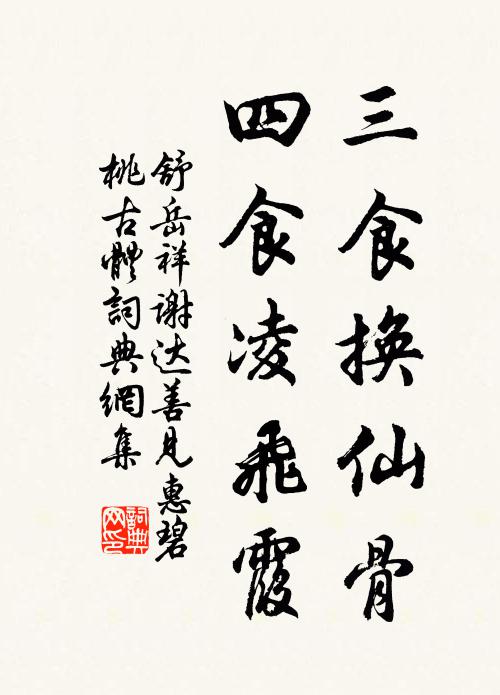 三食換仙骨
四食凌飛霞
舒岳祥谢达善見惠碧
桃古體詞典網集
詞典
网印